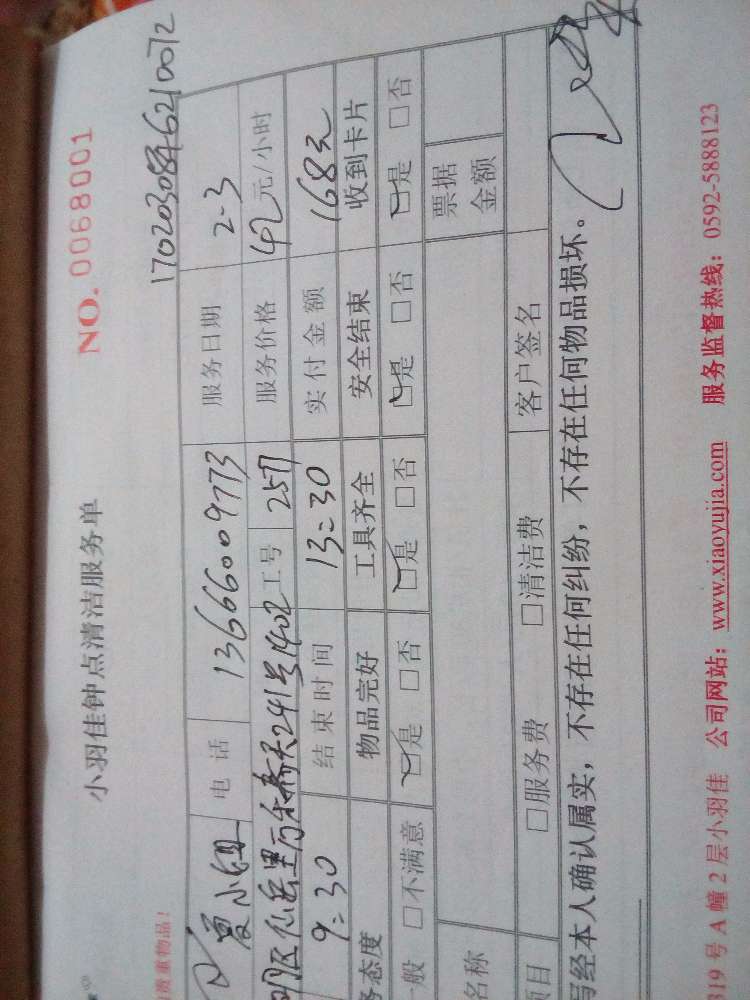 小羽佳钟点清洁服务单
NO. 0068001
1702030846210072
贵重物品！
夏小姐 电话 13666009773 服务日期 2-3
仙岳里 241号1402 工号 2571 服务价格 42元/小时
9:30 结束时间 13:30 实付金额 168元
务态度 物品完好 工具齐全 安全结束 收到卡片
一般 □不满意 □是 □否 □是 □否 □是 □否 □是 □否
名称 票据金额
项目 □服务费 □清洁费 客户签名
经本人确认属实，不存在任何纠纷，不存在任何物品损坏。
319号A幢2层小羽佳 公司网站：www.xiaoyujia.com 服务监督热线：0592-5888123